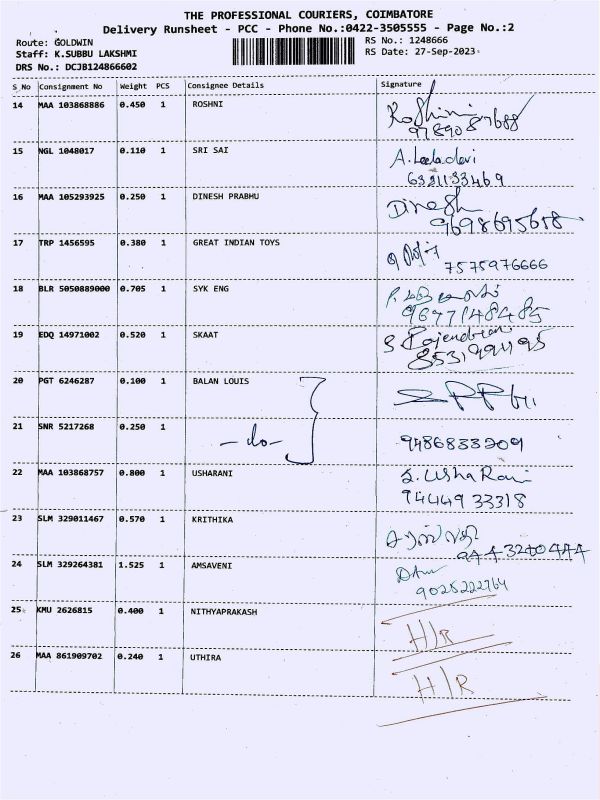 THE PROFESSIONAL COURIERS, COIMBATORE
Delivery Runsheet - PCC - Phone No.:0422-3505555 - Page No.:2
Route: GOLDWIN RS No.: 1248666
Staff: K.SUBBU LAKSHMI RS Date: 27-Sep-2023
DRS No.: DCJB124866602
S_No Consignment No Weight PCS Consignee Details Signature
14 MAA 103868886 0.450 1 ROSHNI Roshini
9789087688
15 NGL 1048017 0.110 1 SRI SAI A. Leeladevi
6381133469
16 MAA 105293925 0.250 1 DINESH PRABHU Dinesh
9698695658
17 TRP 1456595 0.380 1 GREAT INDIAN TOYS
7575976666
18 BLR 5050889000 0.705 1 SYK ENG
9677148485
19 EDQ 14971002 0.520 1 SKAAT S Rajendran
20 PGT 6246287 0.100 1 BALAN LOUIS
21 SNR 5217268 0.250 1 -do- 9486833209
22 MAA 103868757 0.800 1 USHARANI S. Usha Rani
94449 33318
23 SLM 329011467 0.570 1 KRITHIKA
24 SLM 329264381 1.525 1 AMSAVENI
9025222764
25 KMU 2626815 0.400 1 NITHYAPRAKASH H/R
26 MAA 861909702 0.240 1 UTHIRA H/R